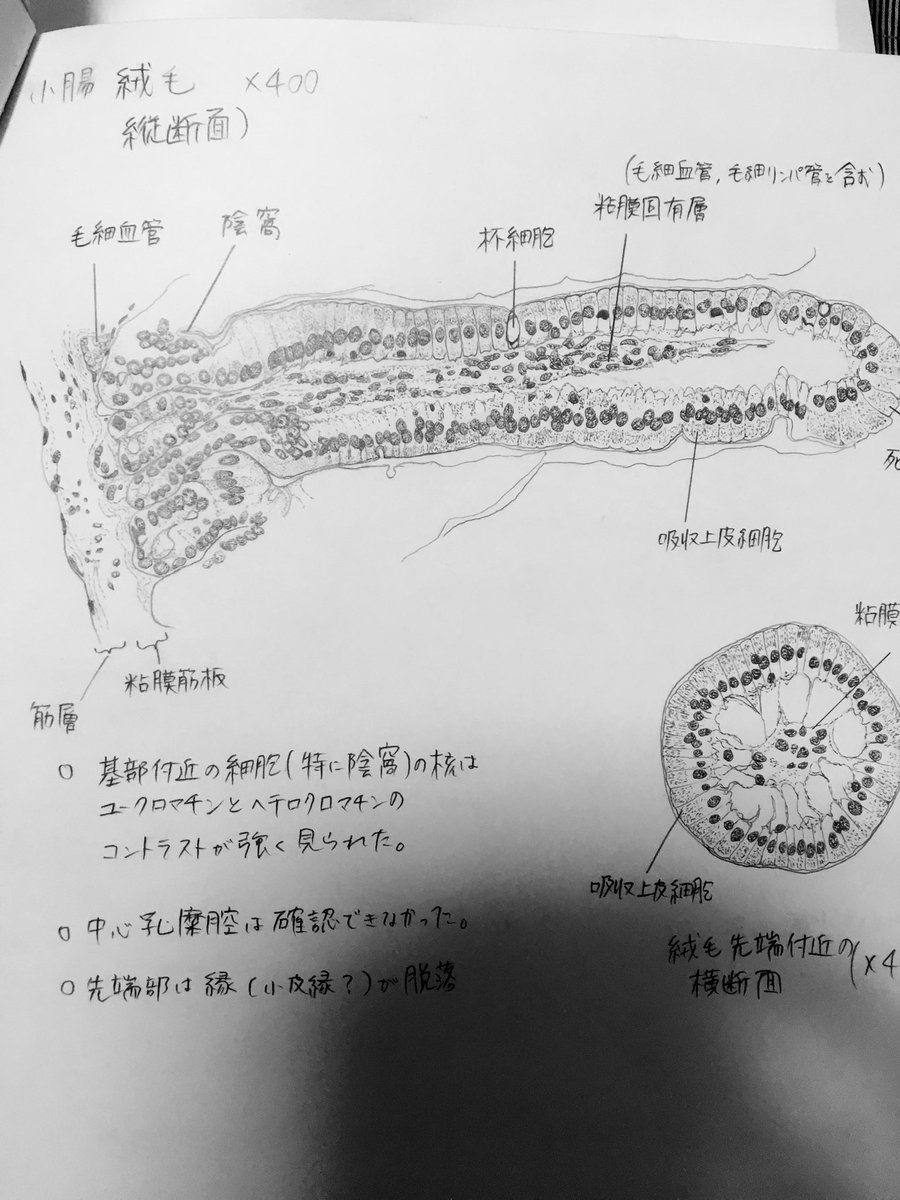 小腸 絨毛 ×400
縦断面)
(毛細血管, 毛細リンパ管を含む)
粘膜固有層
毛細血管
陰窩
杯細胞
死
吸収上皮細胞
粘膜筋板
筋層
粘膜
吸収上皮細胞
絨毛先端付近の
横断面
(×4
○ 基部付近の細胞(特に陰窩)の核は
ユークロマチンとヘテロクロマチンの
コントラストが強く見られた。
○ 中心乳糜腔は確認できなかった。
○ 先端部は縁(小皮縁?)が脱落